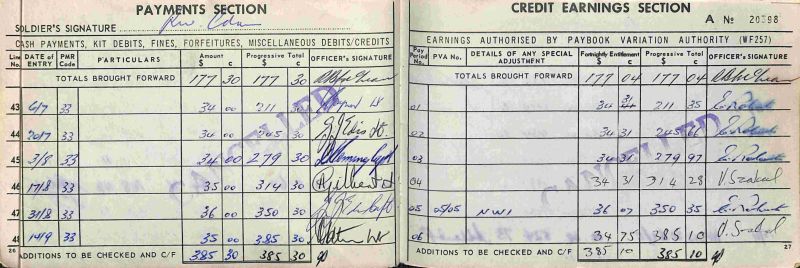 PAYMENTS SECTION
SOLDIER'S SIGNATURE
CASH PAYMENTS, KIT DEBITS, FINES, FORFEITURES, MISCELLANEOUS DEBITS/CREDITS
Line No. DATE of ENTRY PMR Code PARTICULARS Amount $ c Progressive Total $ c OFFICER'S SIGNATURE
TOTALS BROUGHT FORWARD 177 30 177 30
43 6/7 33 34 00 211 30
44 20/7 33 34 00 245 30
45 3/8 33 34 00 279 30
46 17/8 33 35 00 314 30
47 31/8 33 36 00 350 30
48 14/9 33 35 00 385 30
26 ADDITIONS TO BE CHECKED AND C/F 385 30 385 30
CANCELLED
CREDIT EARNINGS SECTION
A No 20398
EARNINGS AUTHORISED BY PAYBOOK VARIATION AUTHORITY (WF257)
Pay Period No. PVA No. DETAILS OF ANY SPECIAL ADJUSTMENT Fortnightly Entitlement $ c Progressive Total $ c OFFICER'S SIGNATURE
TOTALS BROUGHT FORWARD 177 04 177 04
01 34 31 211 35
02 34 31 245 66
03 34 31 279 97
04 34 31 314 28 V. Szakal
05 05/05 NW1 36 07 350 35
06 34 75 385 10 V. Szakal
ADDITIONS TO BE CHECKED AND C/F 385 10 385 10 27
CANCELLED